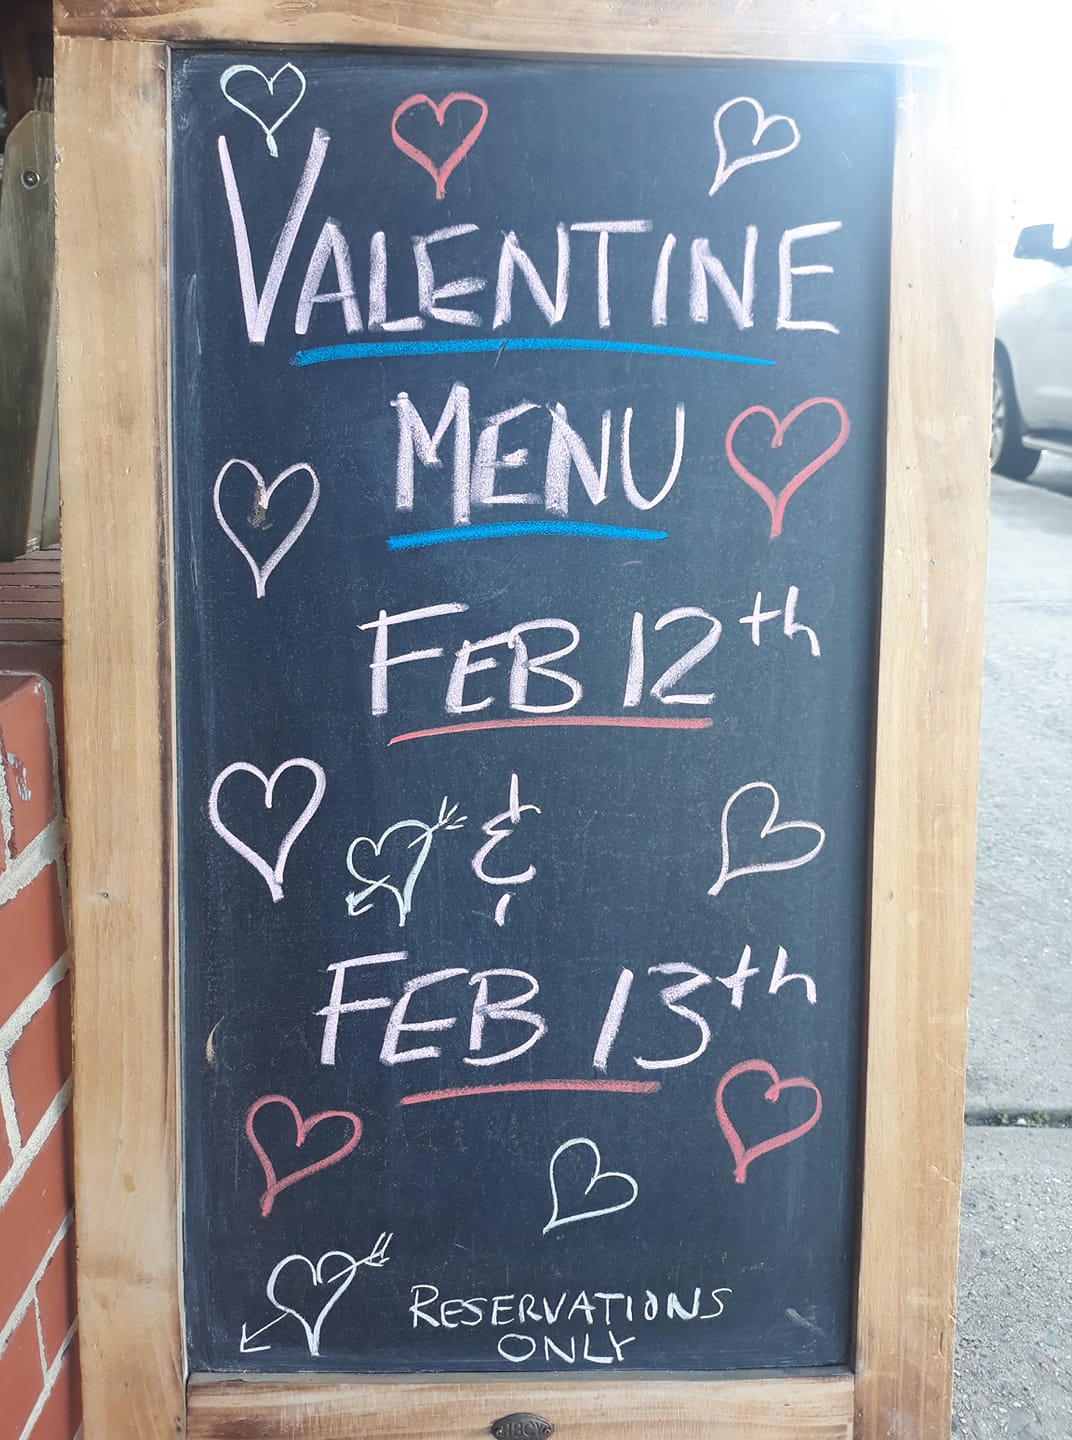 VALENTINE
MENU
FEB 12th
&
FEB 13th
RESERVATIONS
ONLY